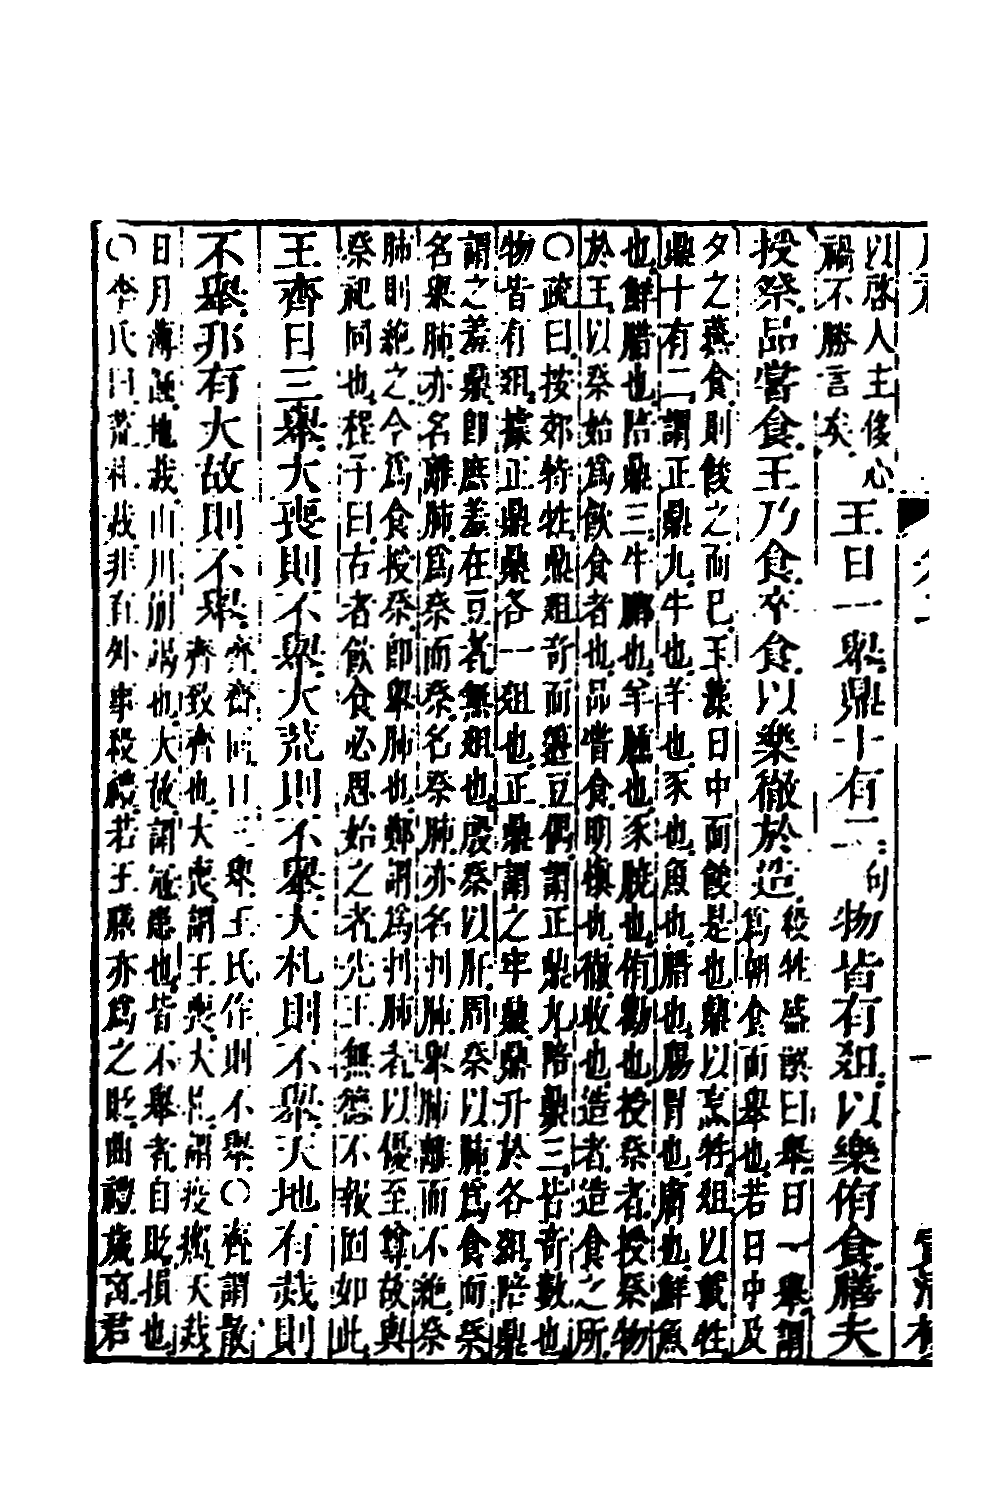 以啓人主侈心
禍不勝言矣
王日一舉鼎十有二
句
物皆有俎以樂侑食膳夫
授祭品嘗食王乃食卒食以樂徹於造
殺牲盛饌曰舉日一舉謂
爲朝食而舉也若日中及
夕之燕食則餕之而已玉藻日中而餕是也鼎以烹牲俎以載牲
鼎十有二謂正鼎九牛也羊也豕也魚也腊也腸胃也膚也鮮魚
也鮮腊也陪鼎三牛膷也羊臐也豕膮也侑勸也授祭者授祭物
於王以祭始爲飲食者也品嘗食明慎也徹收也造者造食之所
〇疏曰按郊特牲鼎俎奇而籩豆偶謂正鼎九陪鼎三皆奇數也
物皆有俎據正鼎鼎各一俎也正鼎謂之牢鼎鼎升於各俎陪鼎
謂之羞鼎即庶羞在豆者無俎也殷祭以肝周祭以肺爲食而祭
名舉肺亦名離肺爲祭而祭名祭肺亦名刌肺舉肺離而不絶祭
肺則絶之今爲食授祭即舉肺也鄭謂爲刌肺者以優至尊故與
祭祀同也程子曰古者飲食必思始之者先王無德不報固如此
王齊日三舉大喪則不舉大荒則不舉大札則不舉天地有烖則
不舉邦有大故則不舉
齊齋同日三舉王氏作則不舉〇齊謂散
齊致齊也大喪謂王喪大札謂疫癘天烖
日月薄蝕地烖山川崩竭也大故謂寇患也皆不舉者自貶損也
〇李氏曰荒札烖非有外事殺禮若王膳亦爲之貶曲禮歲凶君